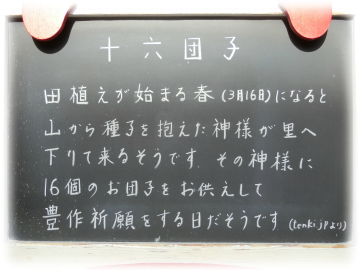 十六団子
田植えが始まる春(3月16日)になると
山から種子を抱えた神様が里へ
下りて来るそうです。その神様に
16個のお団子をお供えして
豊作祈願をする日だそうです(tenki.jpより)